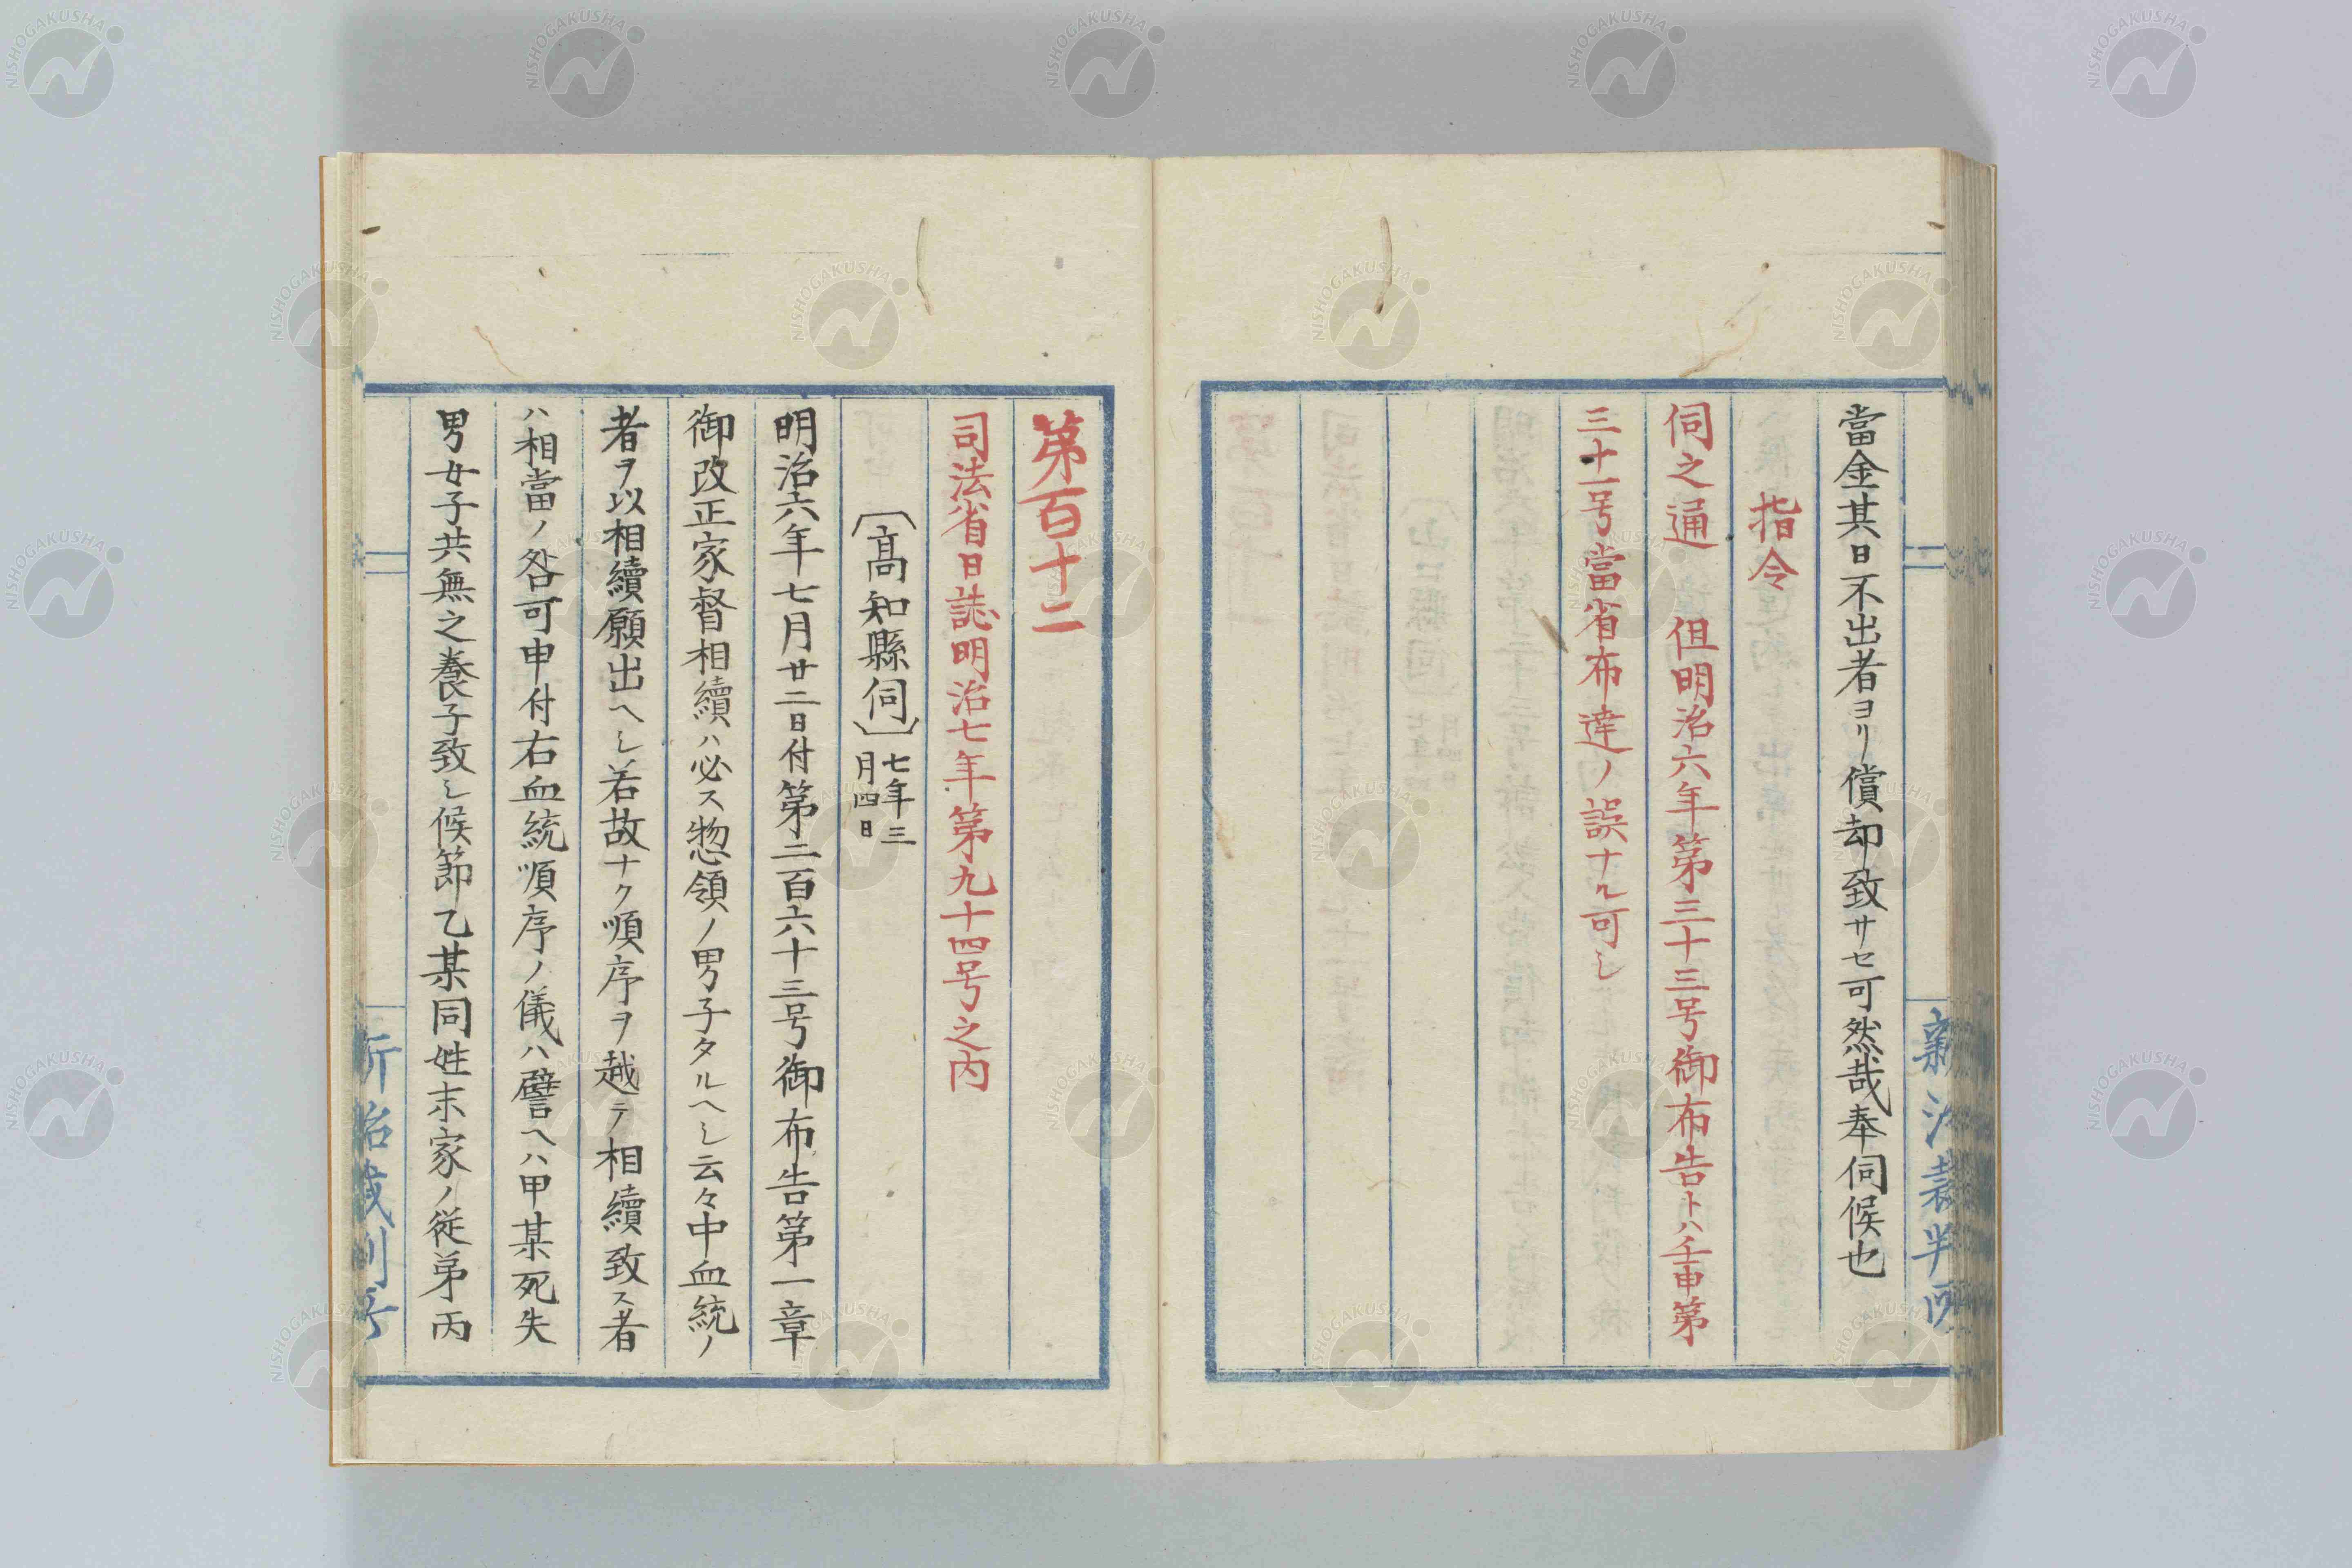 當金其日不出者ヨリ償却致サセ可然哉奉伺候也
指令
伺之通　但明治六年第三十三号御布告トハ壬申第
三十一号當省布達ノ誤ナル可シ
第百十二
司法省日誌明治七年第九十四号之内
〔高知縣伺〕七年三
月四日
明治六年七月廿二日付第二百六十三号御布告第一章
御改正家督相續ハ必ス惣領ノ男子タルヘシ云々中血統ノ
者ヲ以相續願出ヘシ若故ナク順序ヲ越テ相續致ス者
ハ相當ノ咎可申付右血統順序ノ儀ハ譬ヘハ甲某死失
男女子共無之養子致シ候節乙某同姓末家ノ従弟丙
NISHOGAKUSHA